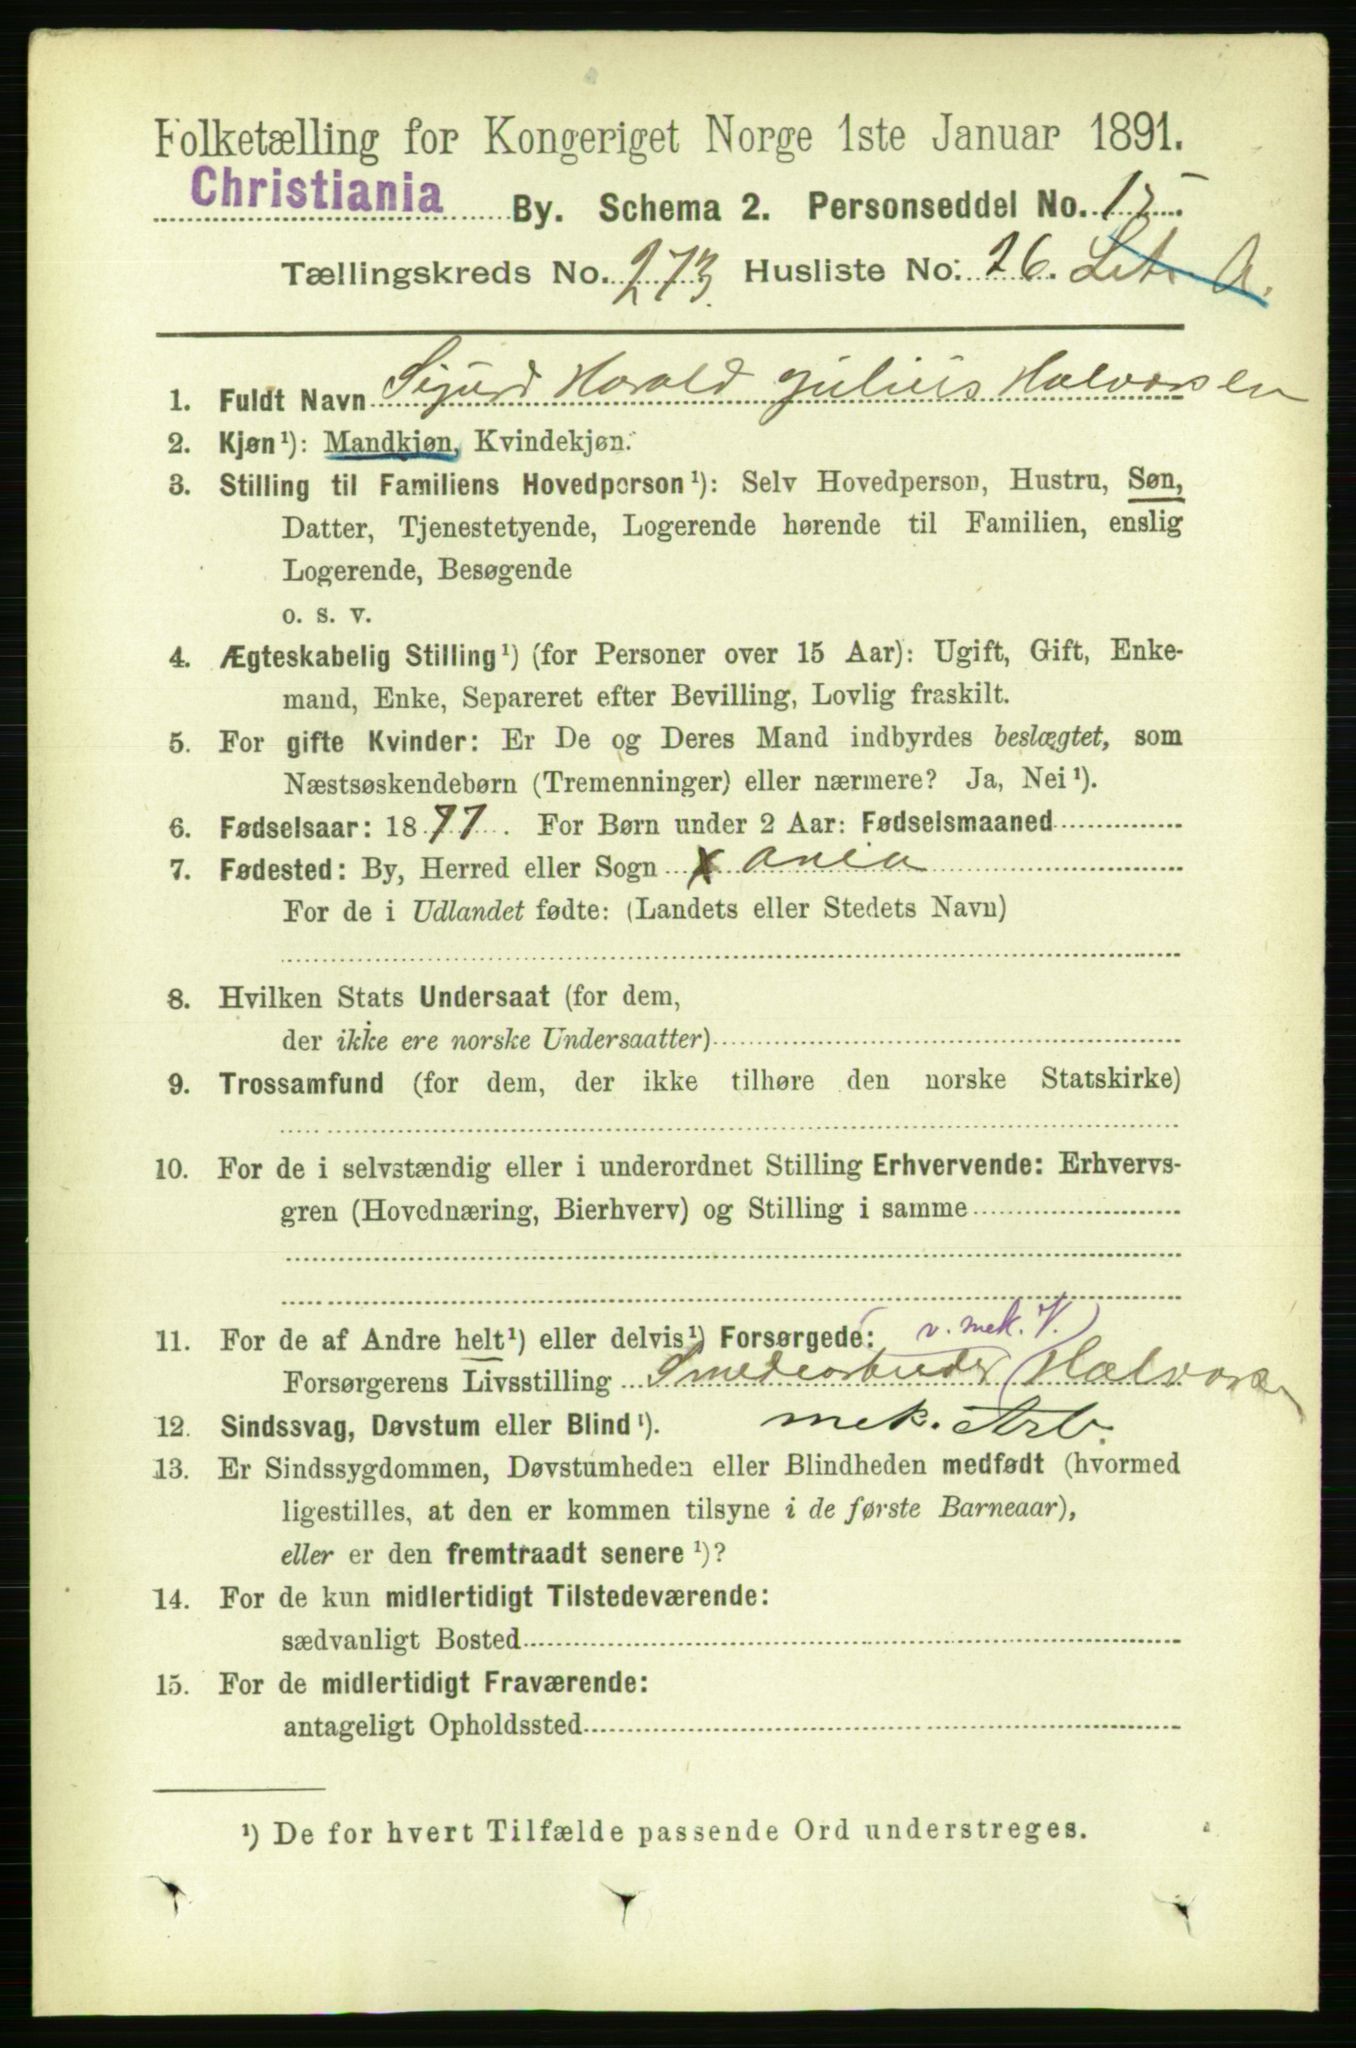 Folketælling for Kongeriget Norge 1ste Januar 1891.
Christiania By. Schema 2. Personseddel No. 15.
Tællingskreds No. 273. Husliste No. 26. Litr A.
1. Fuldt Navn Sigurd Harald Julius Halvorsen
2. Kjøn¹): Mandkjøn, Kvindekjøn.
3. Stilling til Familiens Hovedperson¹): Selv Hovedperson, Hustru, Søn,
Datter, Tjenestetyende, Logerende hørende til Familien, enslig
Logerende, Besøgende
o. s. v.
4. Ægteskabelig Stilling¹) (for Personer over 15 Aar): Ugift, Gift, Enke-
mand, Enke, Separeret efter Bevilling, Lovlig fraskilt.
5. For gifte Kvinder: Er De og Deres Mand indbyrdes beslægtet, som
Næstsøskendebørn (Tremenninger) eller nærmere? Ja, Nei¹).
6. Fødselsaar: 1877. For Børn under 2 Aar: Fødselsmaaned
7. Fødested: By, Herred eller Sogn Xania
For de i Udlandet fødte: (Landets eller Stedets Navn)
8. Hvilken Stats Undersaat (for dem,
der ikke ere norske Undersaatter)
9. Trossamfund (for dem, der ikke tilhøre den norske Statskirke)
10. For de i selvstændig eller i underordnet Stilling Erhvervende: Erhvervs-
gren (Hovednæring, Bierhverv) og Stilling i samme
11. For de af Andre helt¹) eller delvis¹) Forsørgede: v. mek. V.
Forsørgerens Livsstilling Smedearbeider (Halvorsen)
12. Sindssvag, Døvstum eller Blind¹). mek. Arb.
13. Er Sindssygdommen, Døvstumheden eller Blindheden medfødt (hvormed
ligestilles, at den er kommen tilsyne i de første Barneaar),
eller er den fremtraadt senere¹)?
14. For de kun midlertidigt Tilstedeværende:
sædvanligt Bosted
15. For de midlertidigt Fraværende:
antageligt Opholdssted
¹) De for hvert Tilfælde passende Ord understreges.